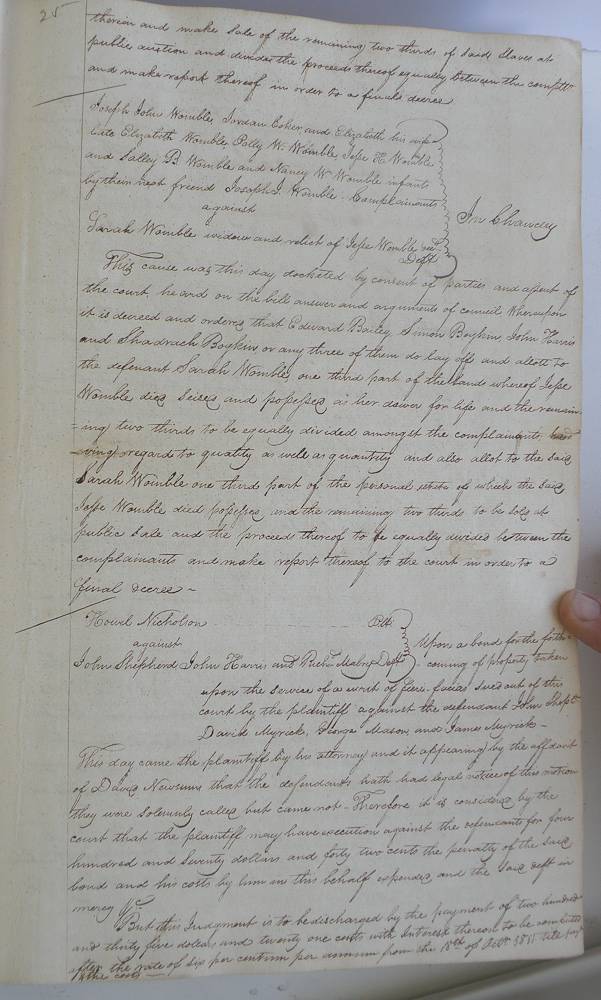 25
thereon and make sale of the remaining two thirds of said slaves at
public auction and divide the proceeds thereof equally between the complts
and make report thereof in order to a final decree
Joseph John Womble, Jordan Coker and Elizabeth his wife
late Elizabeth Womble, Polly W. Womble, Jesse H. Womble
and Salley B. Womble and Nancy W. Womble infants
by their next friend Joseph J. Womble - Complainants
against
Sarah Womble widow and relict of Jesse Womble decd
Deft
In Chancery
This cause was this day, docketed by consent of parties and assent of
the court, heard on the bill answer and arguments of council Whereupon
it is decreed and ordered that Edward Bailey, Simon Boykin, John Harris
and Shadrach Boykin, or any three of them do lay off and allott to
the defenant Sarah Womble, one third part of the lands whereof Jesse
Womble died seised and possessed as her dower for life and the remain-
-ing two thirds to be equally divided amongst the complainants,
-ving regard to quality as well as quantity and also allot to the said
Sarah Womble one third part of the personal estate of which the said
Jesse Womble died possessed, and the remaining two thirds to be sold at
public sale and the proceeds thereof to be equally divided between the
complainants and make report thereof to the court in order to a
final decree -
Howel Nicholson Plt
against
John Shepherd, John Harris and Richd Mabry Defts
Upon a bond for the forth-
-coming of property taken
upon the service of a writ of fieri-facias sued out of this
court by the plaintiff against the defendant John Shepd
David Myrick, George Mason, and James Myrick -
This day came the plaintiff by his attorney and it appearing by the affidavit
of David Newsum that the defendants hath had legal notice of this motion
they were solemnly called but came not - Therefore it is considered by the
court that the plaintiff may have execution against the defendants for four
hundred and seventy dollars and forty two cents the penalty of the said
bond and his costs by him in this behalf expended and the said deft in
mercy &c
But this Judgment is to be discharged by the payment of two hundred
and thirty five dollars and twenty one cents with Interest thereon to be computed
after the rate of six per centum per annum from the of Octr 1811 till paid
& the costs